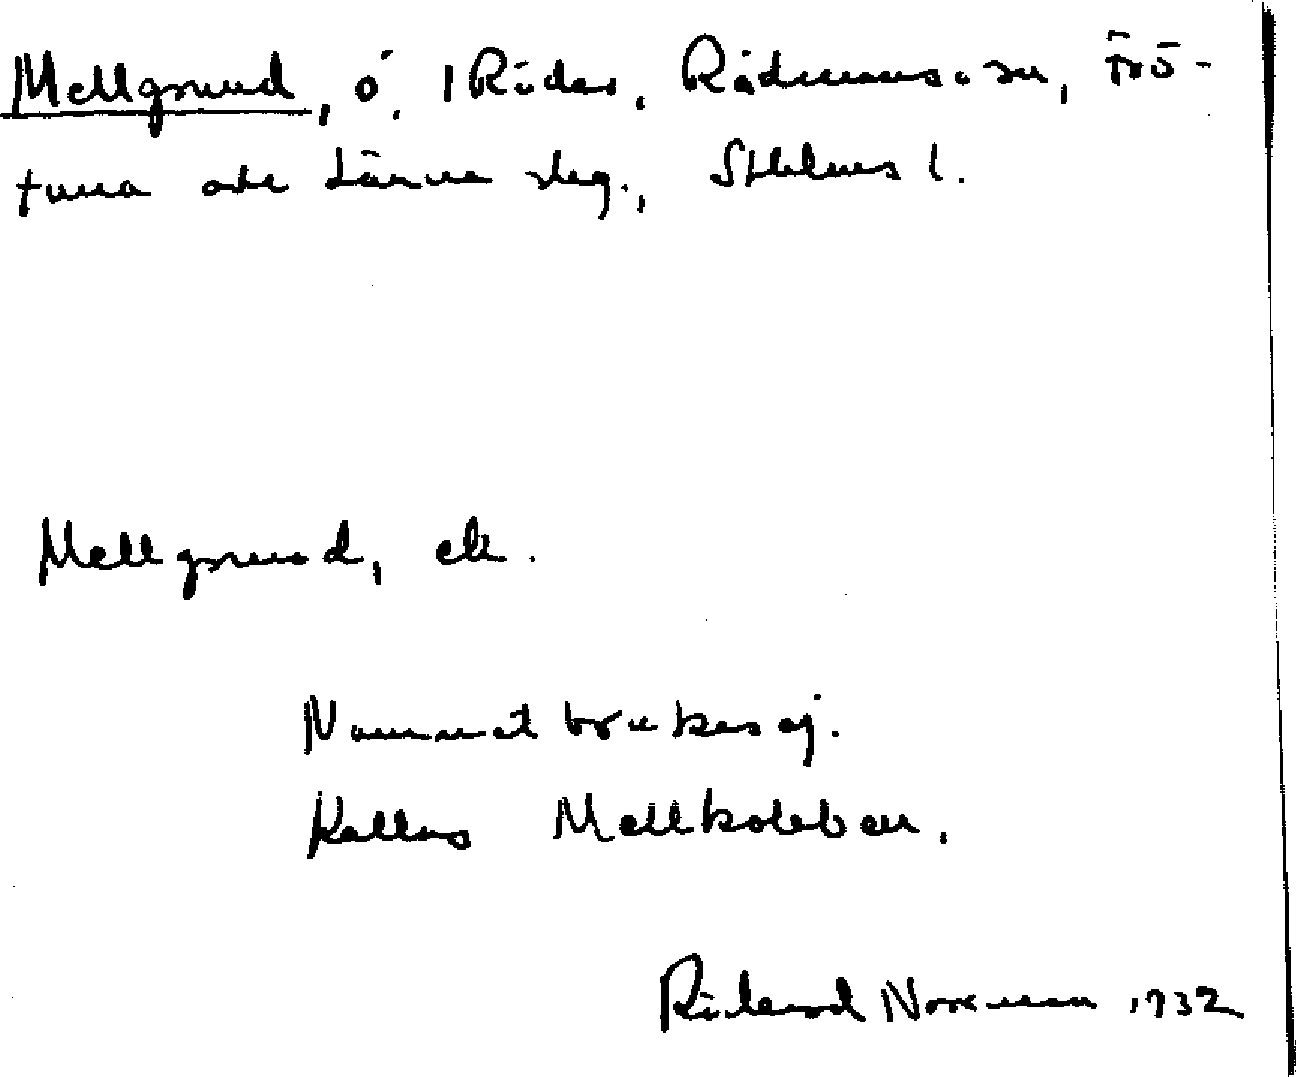 Mellgrund, ö, i Räder, Rådmansö sn, Frö-
tuna och Länna sklg., Sthlms l.
Mellgrund, ek.
Namnet brukas ej.
Kallas Mellkobben.
Rickard Norrman 1932